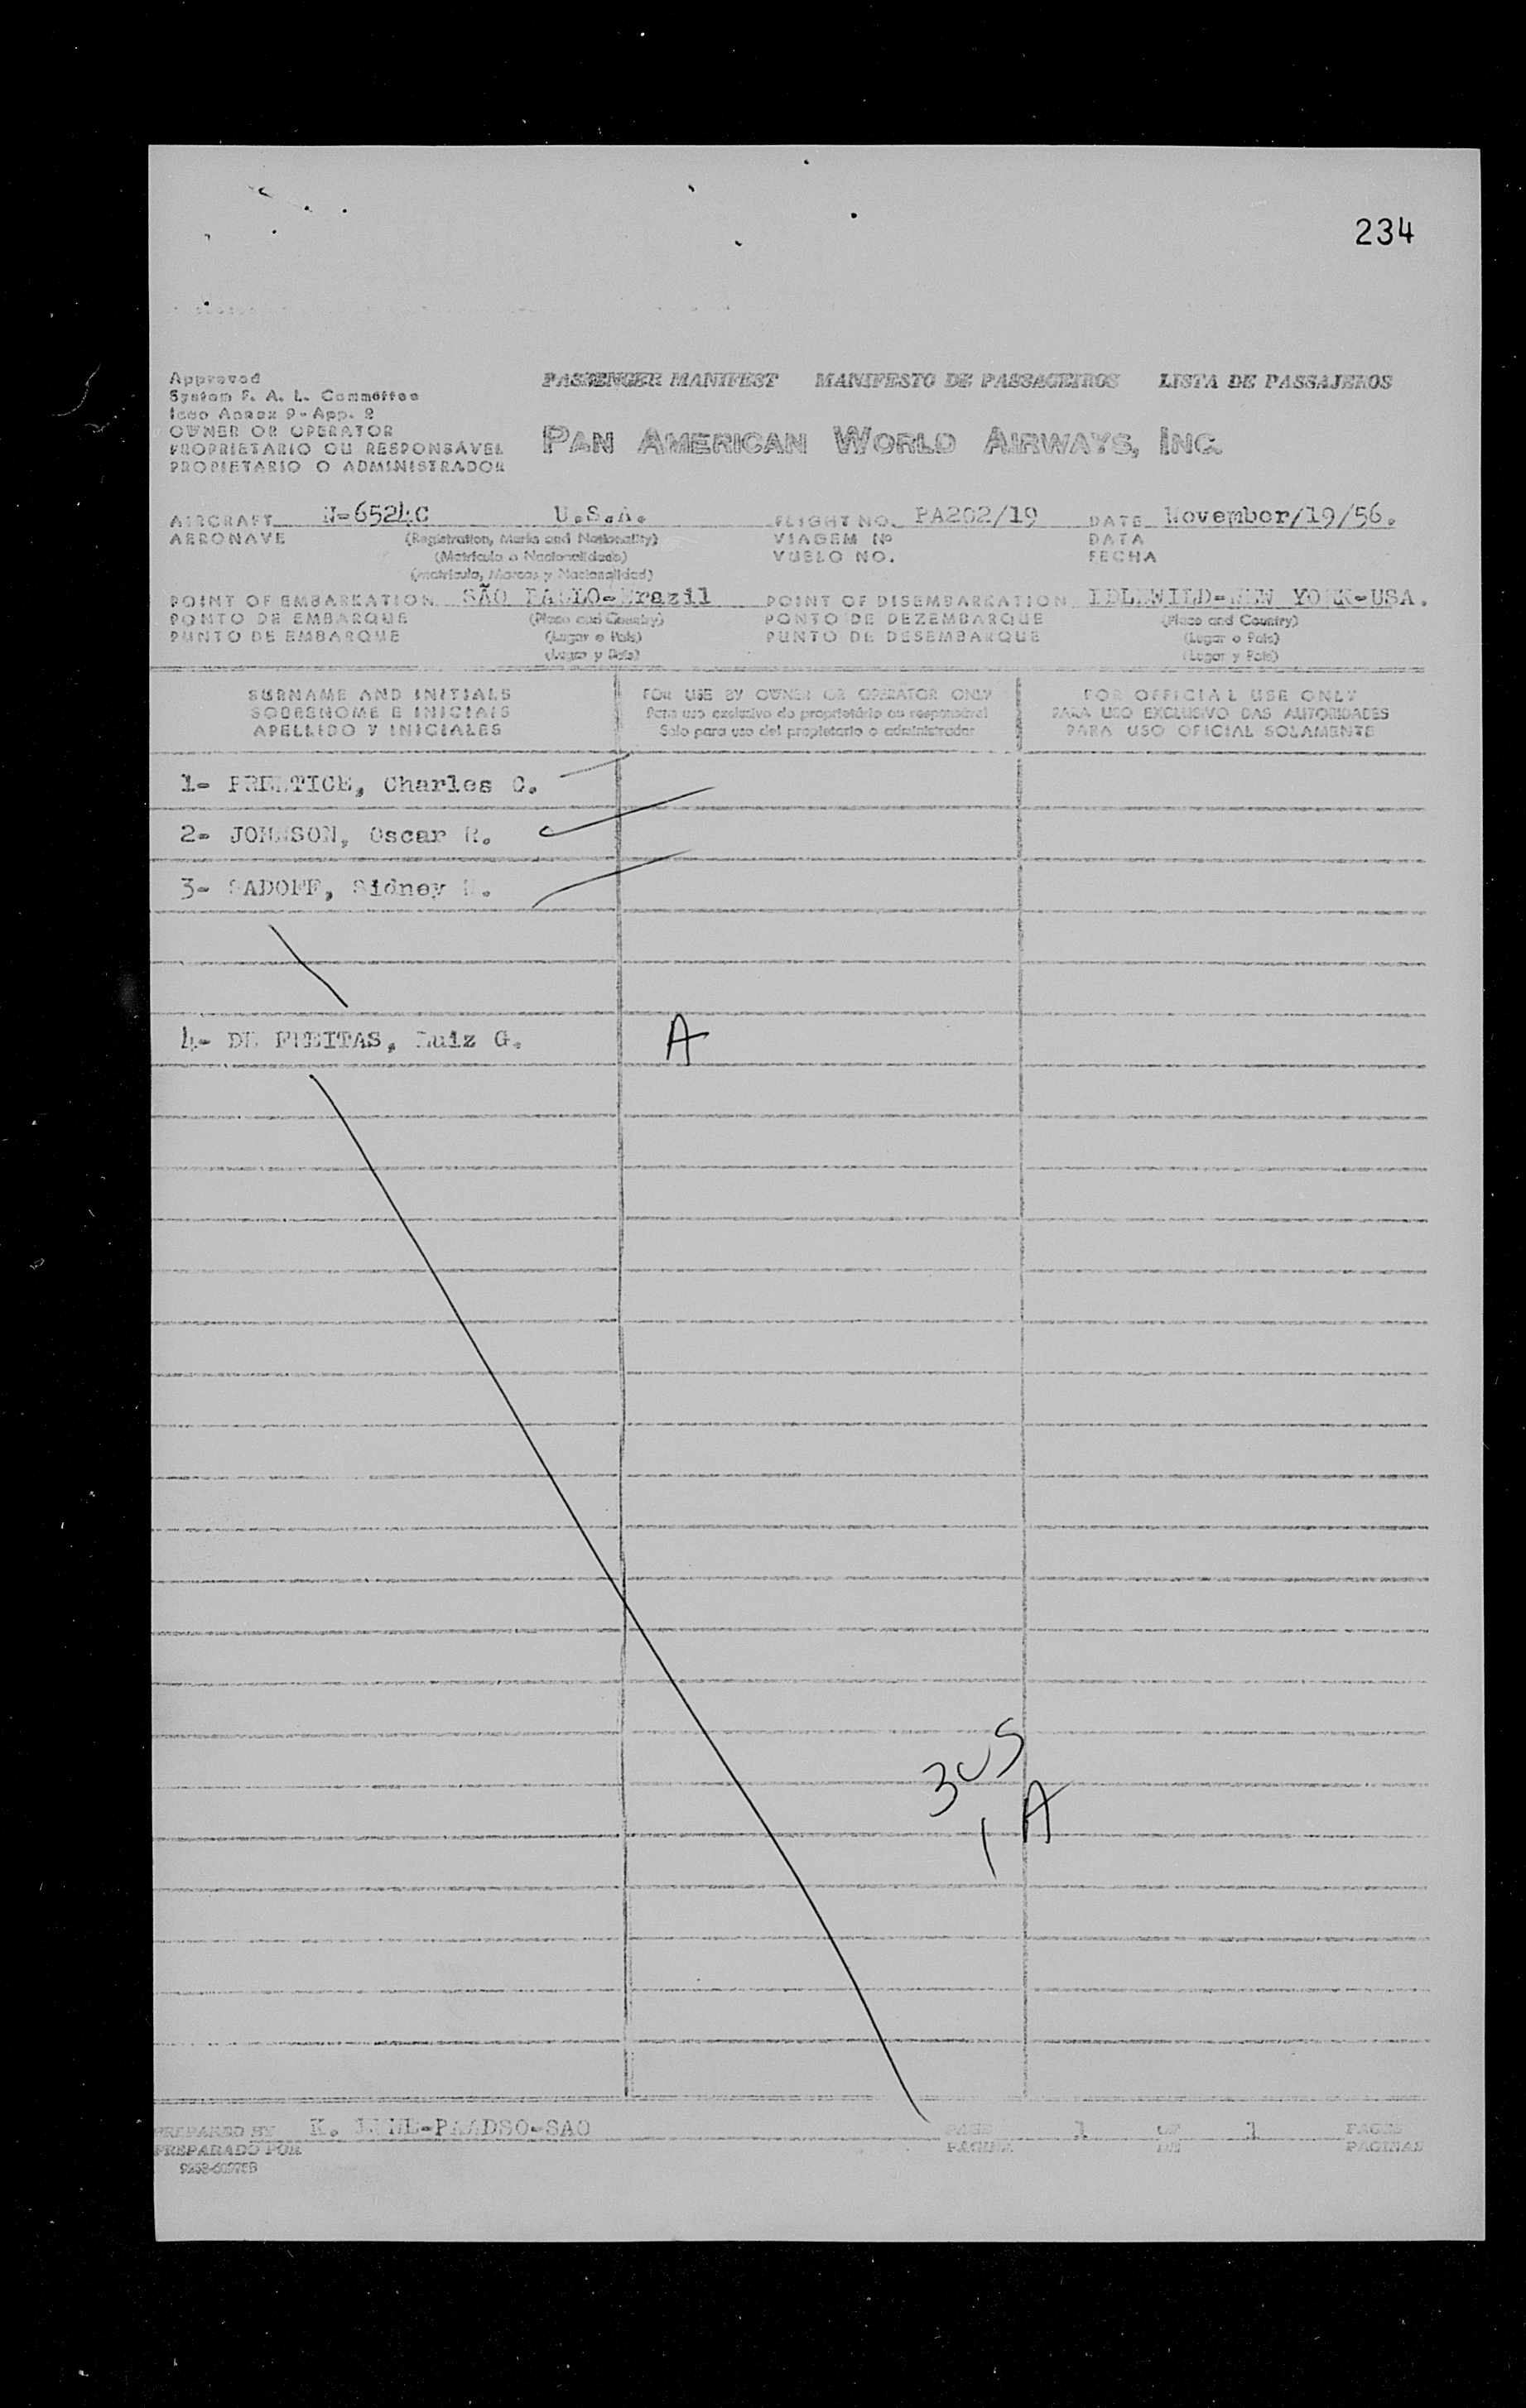 234
Approved
System F. A. L. Committee
Icao Annex 9 - App. 2
OWNER OR OPERATOR
PROPRIETARIO OU RESPONSÁVEL
PROPIETARIO O ADMINISTRADOR
PASSENGER MANIFEST MANIFESTO DE PASSAGEIROS LISTA DE PASSAJEROS
PAN AMERICAN WORLD AIRWAYS, INC.
AIRCRAFT N-6524C U.S.A. FLIGHT NO. PA202/19 DATE November/19/56.
AERONAVE (Registration, Marks and Nationality) VIAGEM Nº DATA
(Matrícula e Nacionalidade) VUELO NO. FECHA
(Matrícula, Marcas y Nacionalidad)
POINT OF EMBARKATION SÃO PAULO-Brazil POINT OF DISEMBARKATION IDLEWILD-NEW YORK-USA.
PONTO DE EMBARQUE (Place and Country) PONTO DE DEZEMBARQUE (Place and Country)
PUNTO DE EMBARQUE (Lugar e País) PUNTO DE DESEMBARQUE (Lugar e País)
(Lugar y País) (Lugar y País)
SURNAME AND INITIALS FOR USE BY OWNER OR OPERATOR ONLY FOR OFFICIAL USE ONLY
SOBRENOME E INICIAIS Para uso exclusivo do proprietário ou responsável PARA USO EXCLUSIVO DAS AUTORIDADES
APELLIDO Y INICIALES Sólo para uso del propietario o administrador PARA USO OFICIAL SOLAMENTE
1- PRENTICE, Charles C.
2- JOHNSON, Oscar R.
3- SADOFF, Sidney
4- DE FREITAS, Luiz G. A
3 US
1 A
PREPARED BY K. -PAADSO-SAO PAGE 1 OF 1 PAGES
PREPARADO POR PÁGINA DE PAGINAS